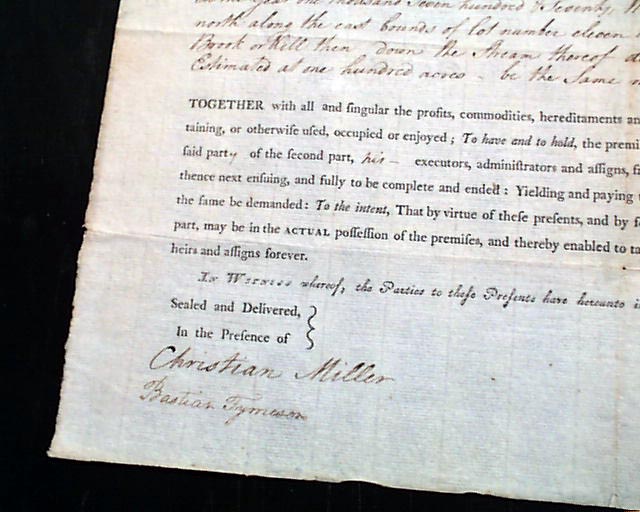 the year one thousand Seven hundred & Seventy
north along the east bounds of lot number eleven
Brook or Kill then down the Stream thereof
Estimated at one hundred acres - be the Same
TOGETHER with all and ſingular the profits, commodities, hereditaments an
taining, or otherwiſe uſed, occupied or enjoyed; To have and to hold, the premi
ſaid party of the ſecond part, his — executors, adminiſtrators and aſſigns, f
thence next enſuing, and fully to be complete and ended: Yielding and paying
the ſame be demanded: To the intent, That by virtue of theſe preſents, and by
part, may be in the ACTUAL poſſeſſion of the premiſes, and thereby enabled to ta
heirs and aſſigns forever.
In Witneſs whereof, the Parties to theſe Preſents have hereunto
Sealed and Delivered,
In the Preſence of
Christian Miller
Bastian Tymeson